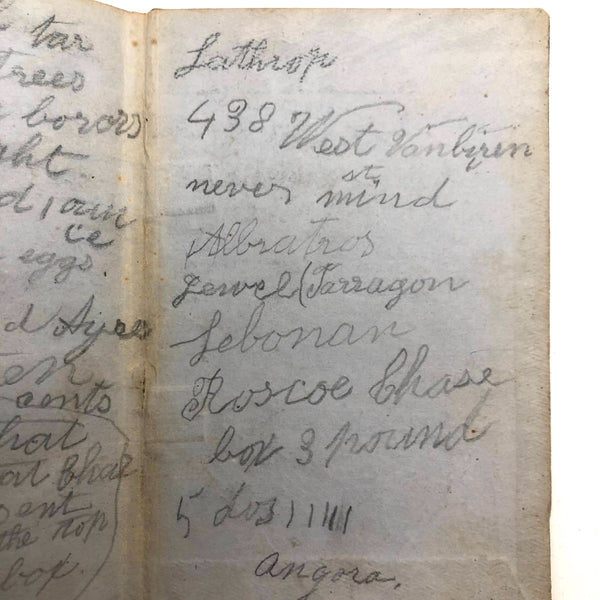 tar
trees
borors
ght
d, own
ie
eggs
d Ayre
en
cents
hat
at Chase
sent
the top
box.
Lathrop
438 West Vanbyren
st.
never mind
Albratros
Jewel (Tarragon
Lebonan
Roscoe Chase
box 3 pound
5 dos | | | | |
Angora.